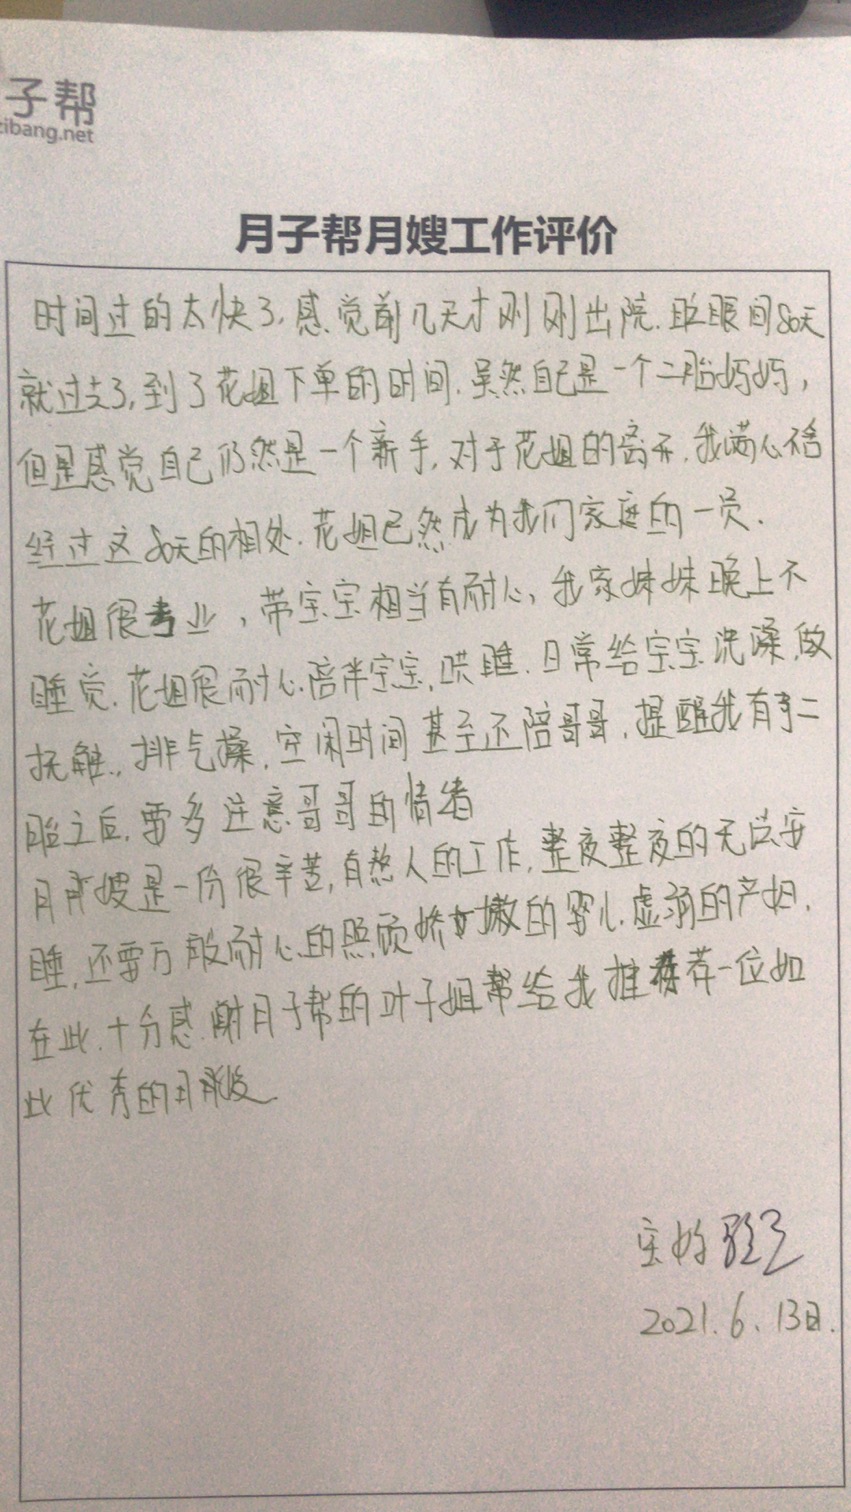 子帮
zibang.net
月子帮月嫂工作评价
时间过的太快了,感觉前几天才刚刚出院.眨眼间80天
就过去了,到了花姐下单的时间.虽然自己是一个二胎妈妈,
但是感觉自己仍然是一个新手,对于花姐的离开,我满心不舍
经过这80天的相处.花姐已然成为我们家庭的一员.
花姐很专业,带宝宝相当有耐心,我家妹妹晚上不
睡觉.花姐很耐心陪伴宝宝,哄睡.日常给宝宝洗澡,做
抚触,排气操,空闲时间甚至还陪哥哥,提醒我有了二
胎之后,要多注意哥哥的情绪
月嫂是一份很辛苦,自熬人的工作,整夜整夜的无法安
睡,还要万般耐心的照顾娇嫩的婴儿.虚弱的产妇.
在此.十分感谢月子帮的叶子姐帮给我推荐一位如
此优秀的月嫂.
宝妈
2021.6.13日.